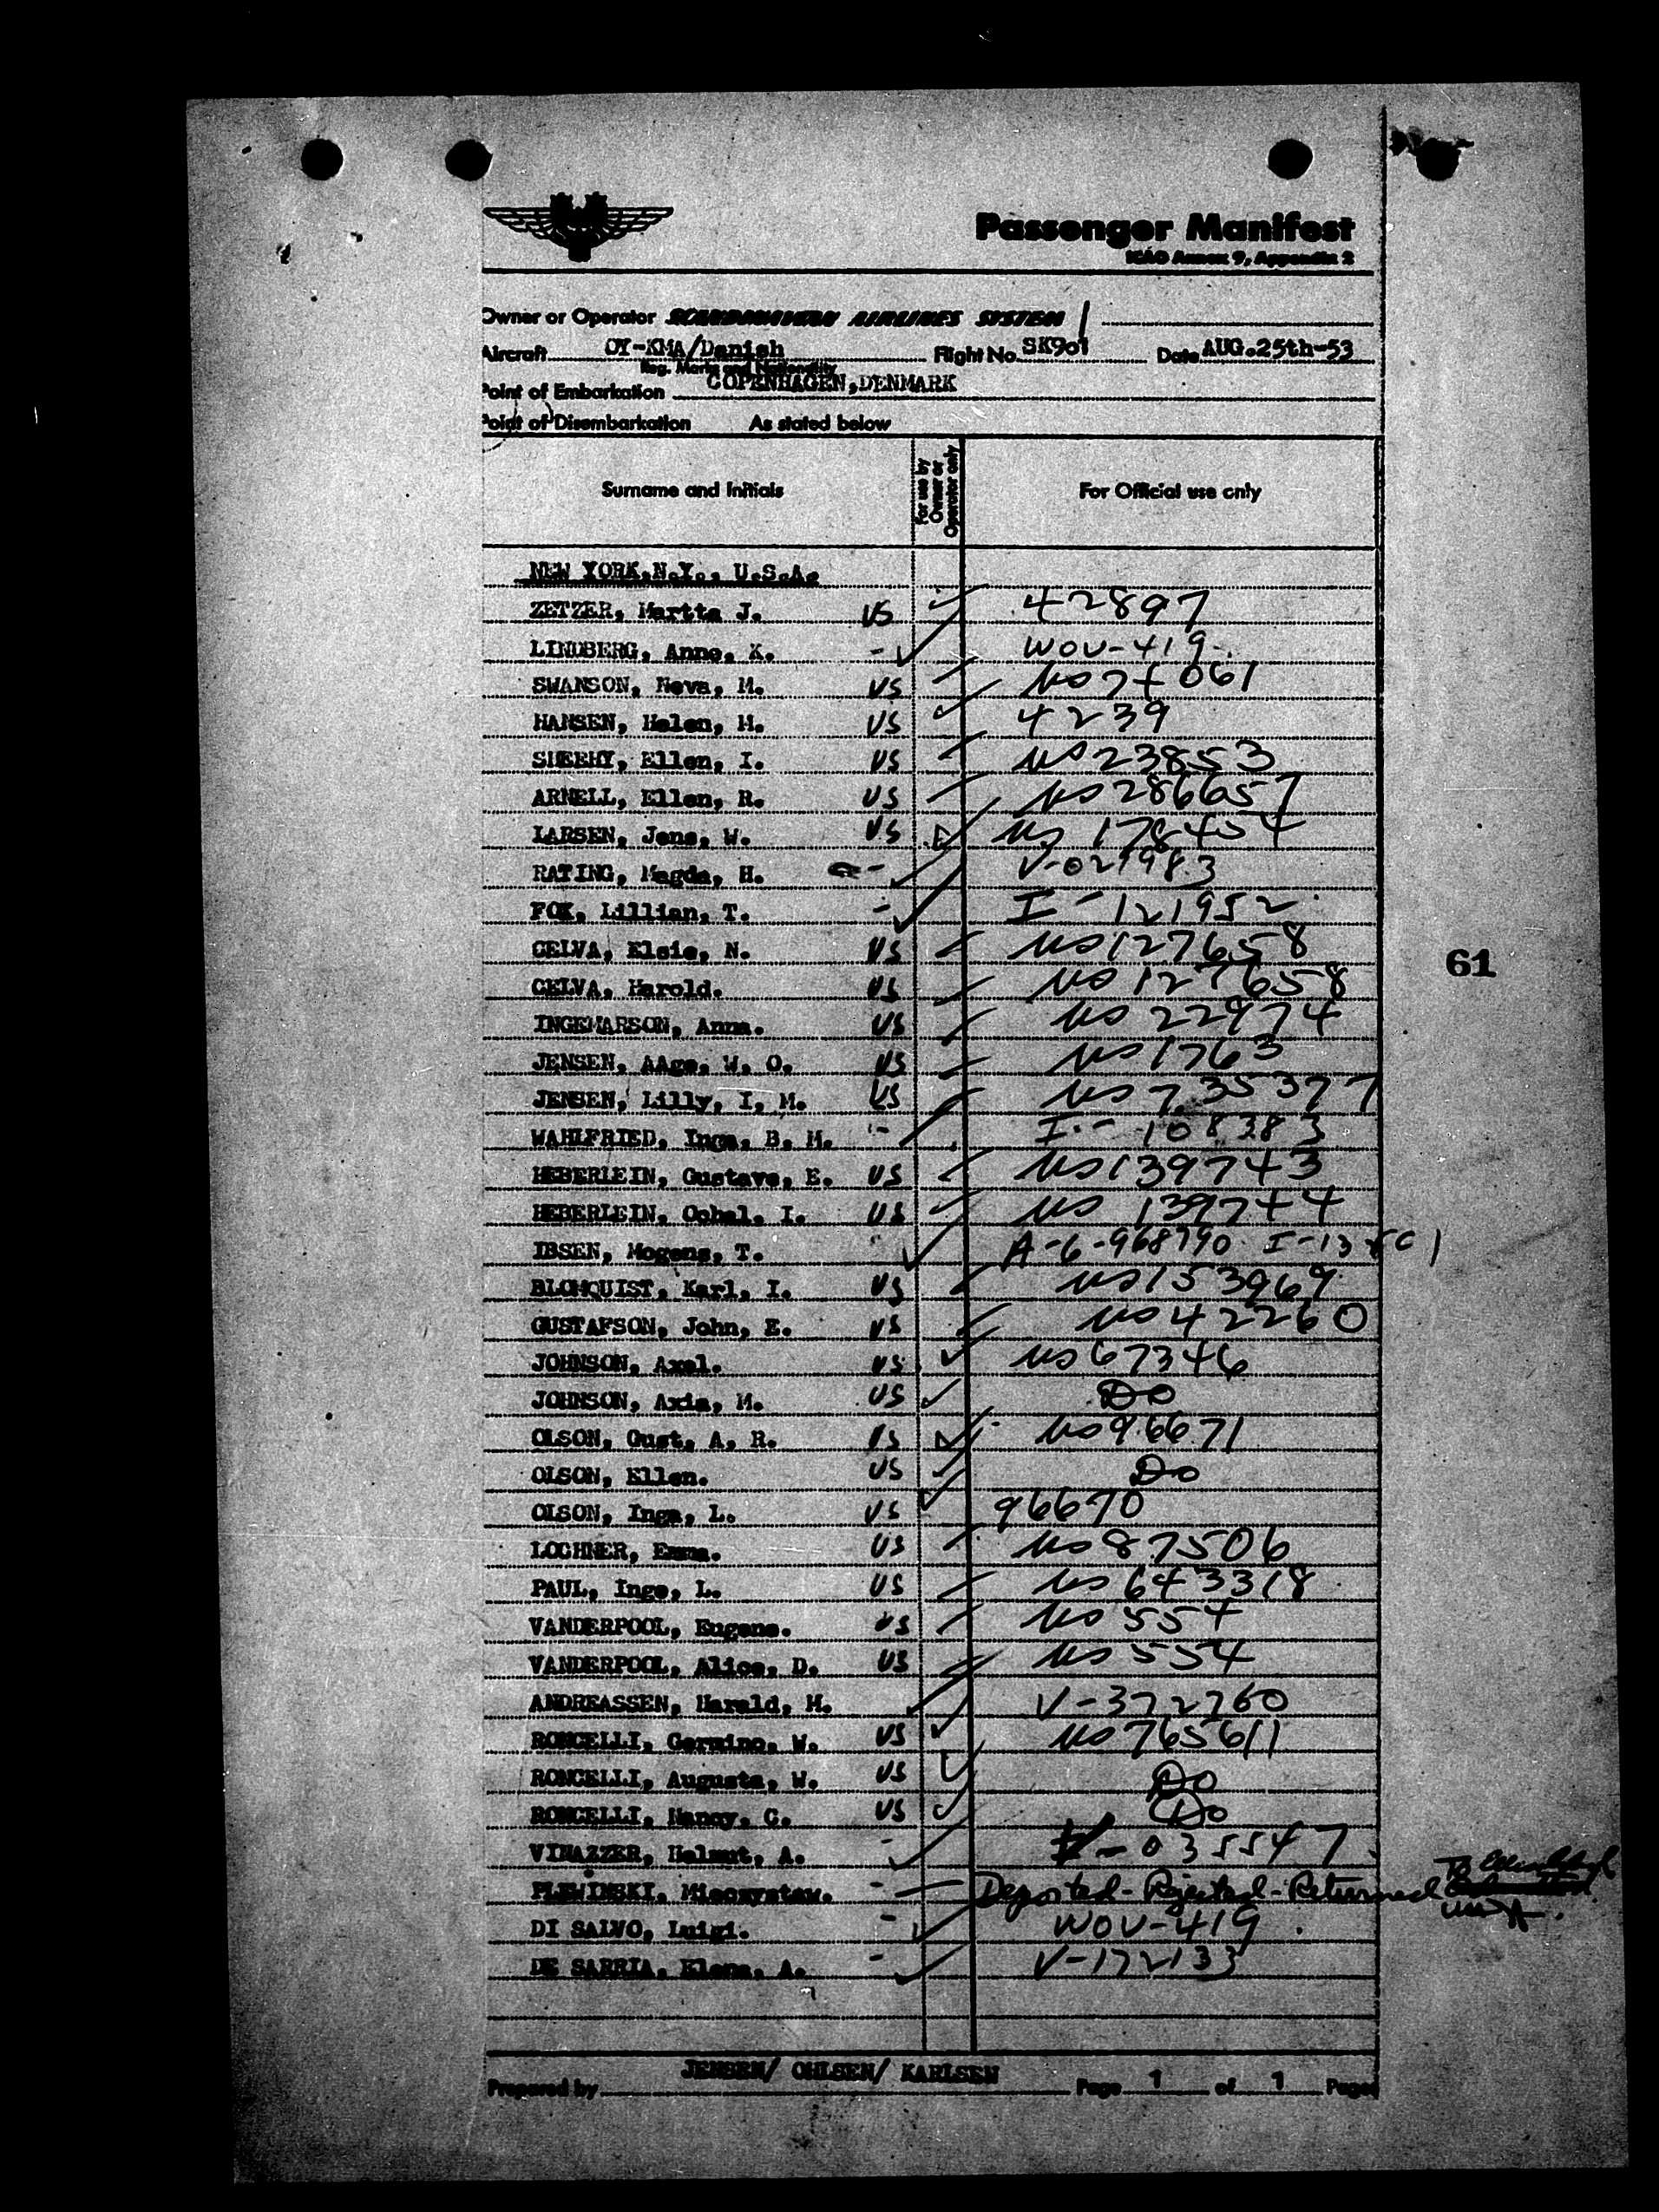 Passenger Manifest
ICAO Annex 9, Appendix 2
Owner or Operator SCANDINAVIAN AIRLINES SYSTEM
Aircraft OY-KMA/Danish Flight No. SK901 Date AUG.25th-53
Reg. Marks and Nationality
Point of Embarkation COPENHAGEN, DENMARK
Point of Disembarkation As stated below
Surname and Initials For use by Owner or Operator only For Official use only
NEW YORK,N.Y., U.S.A.
ZETZER, Martta J. US 42897
LINDBERG, Anne, K. - WOU-419
SWANSON, Neva, M. US US 74061
HANSEN, Helen, M. US 4239
SHEEHY, Ellen, I. US US 23853
ARNELL, Ellen, R. US US 286657
LARSEN, Jens, W. US US 178454
RATING, Magda, H. - V-021983
FOX, Lillian, T. - I-121952
CELVA, Elsie, N. US US 127658
CELVA, Harold. US US 127658
INGEMARSON, Anna. US US 22974
JENSEN, AAge, W, O. US US 1763
JENSEN, Lilly, I, M. US US 735377
WAHLFRIED, Inga, B, M. - I-108383
HEBERLEIN, Gustave, E. US US 139743
HEBERLEIN, I. US US 139744
IBSEN, Mogens, T. A-6-968790
BLOMQUIST, Karl, I. US US 153969
GUSTAFSON, John, E. US US 42260
JOHNSON, Axel. US US 67346
JOHNSON, Axia, M. US Do
OLSON, Gust, A, R. US US 96671
OLSON, Ellen. US Do
OLSON, Inga, L. US 96670
LOCHNER, Emma. US US 87506
PAUL, Inge, L. US US 643318
VANDERPOOL, Eugene. US US 554
VANDERPOOL, Alice, D. US US 554
ANDREASSEN, Harald, M. V-372760
RONCELLI, Germino, W. US US 765611
RONCELLI, Augusta, W. US Do
RONCELLI, Nancy, C. US Do
VINAZZER, Helmut, A. - V-035547
PLEWINSKI, Mieczystaw. - Deported-Rejected-Returned To
DI SALVO, Luigi. - WOU-419
DE SARRIA, Elena, A. - V-172133
61
Prepared by JENSEN/ OHLSEN/ KARLSEN Page 1 of 1 Pages